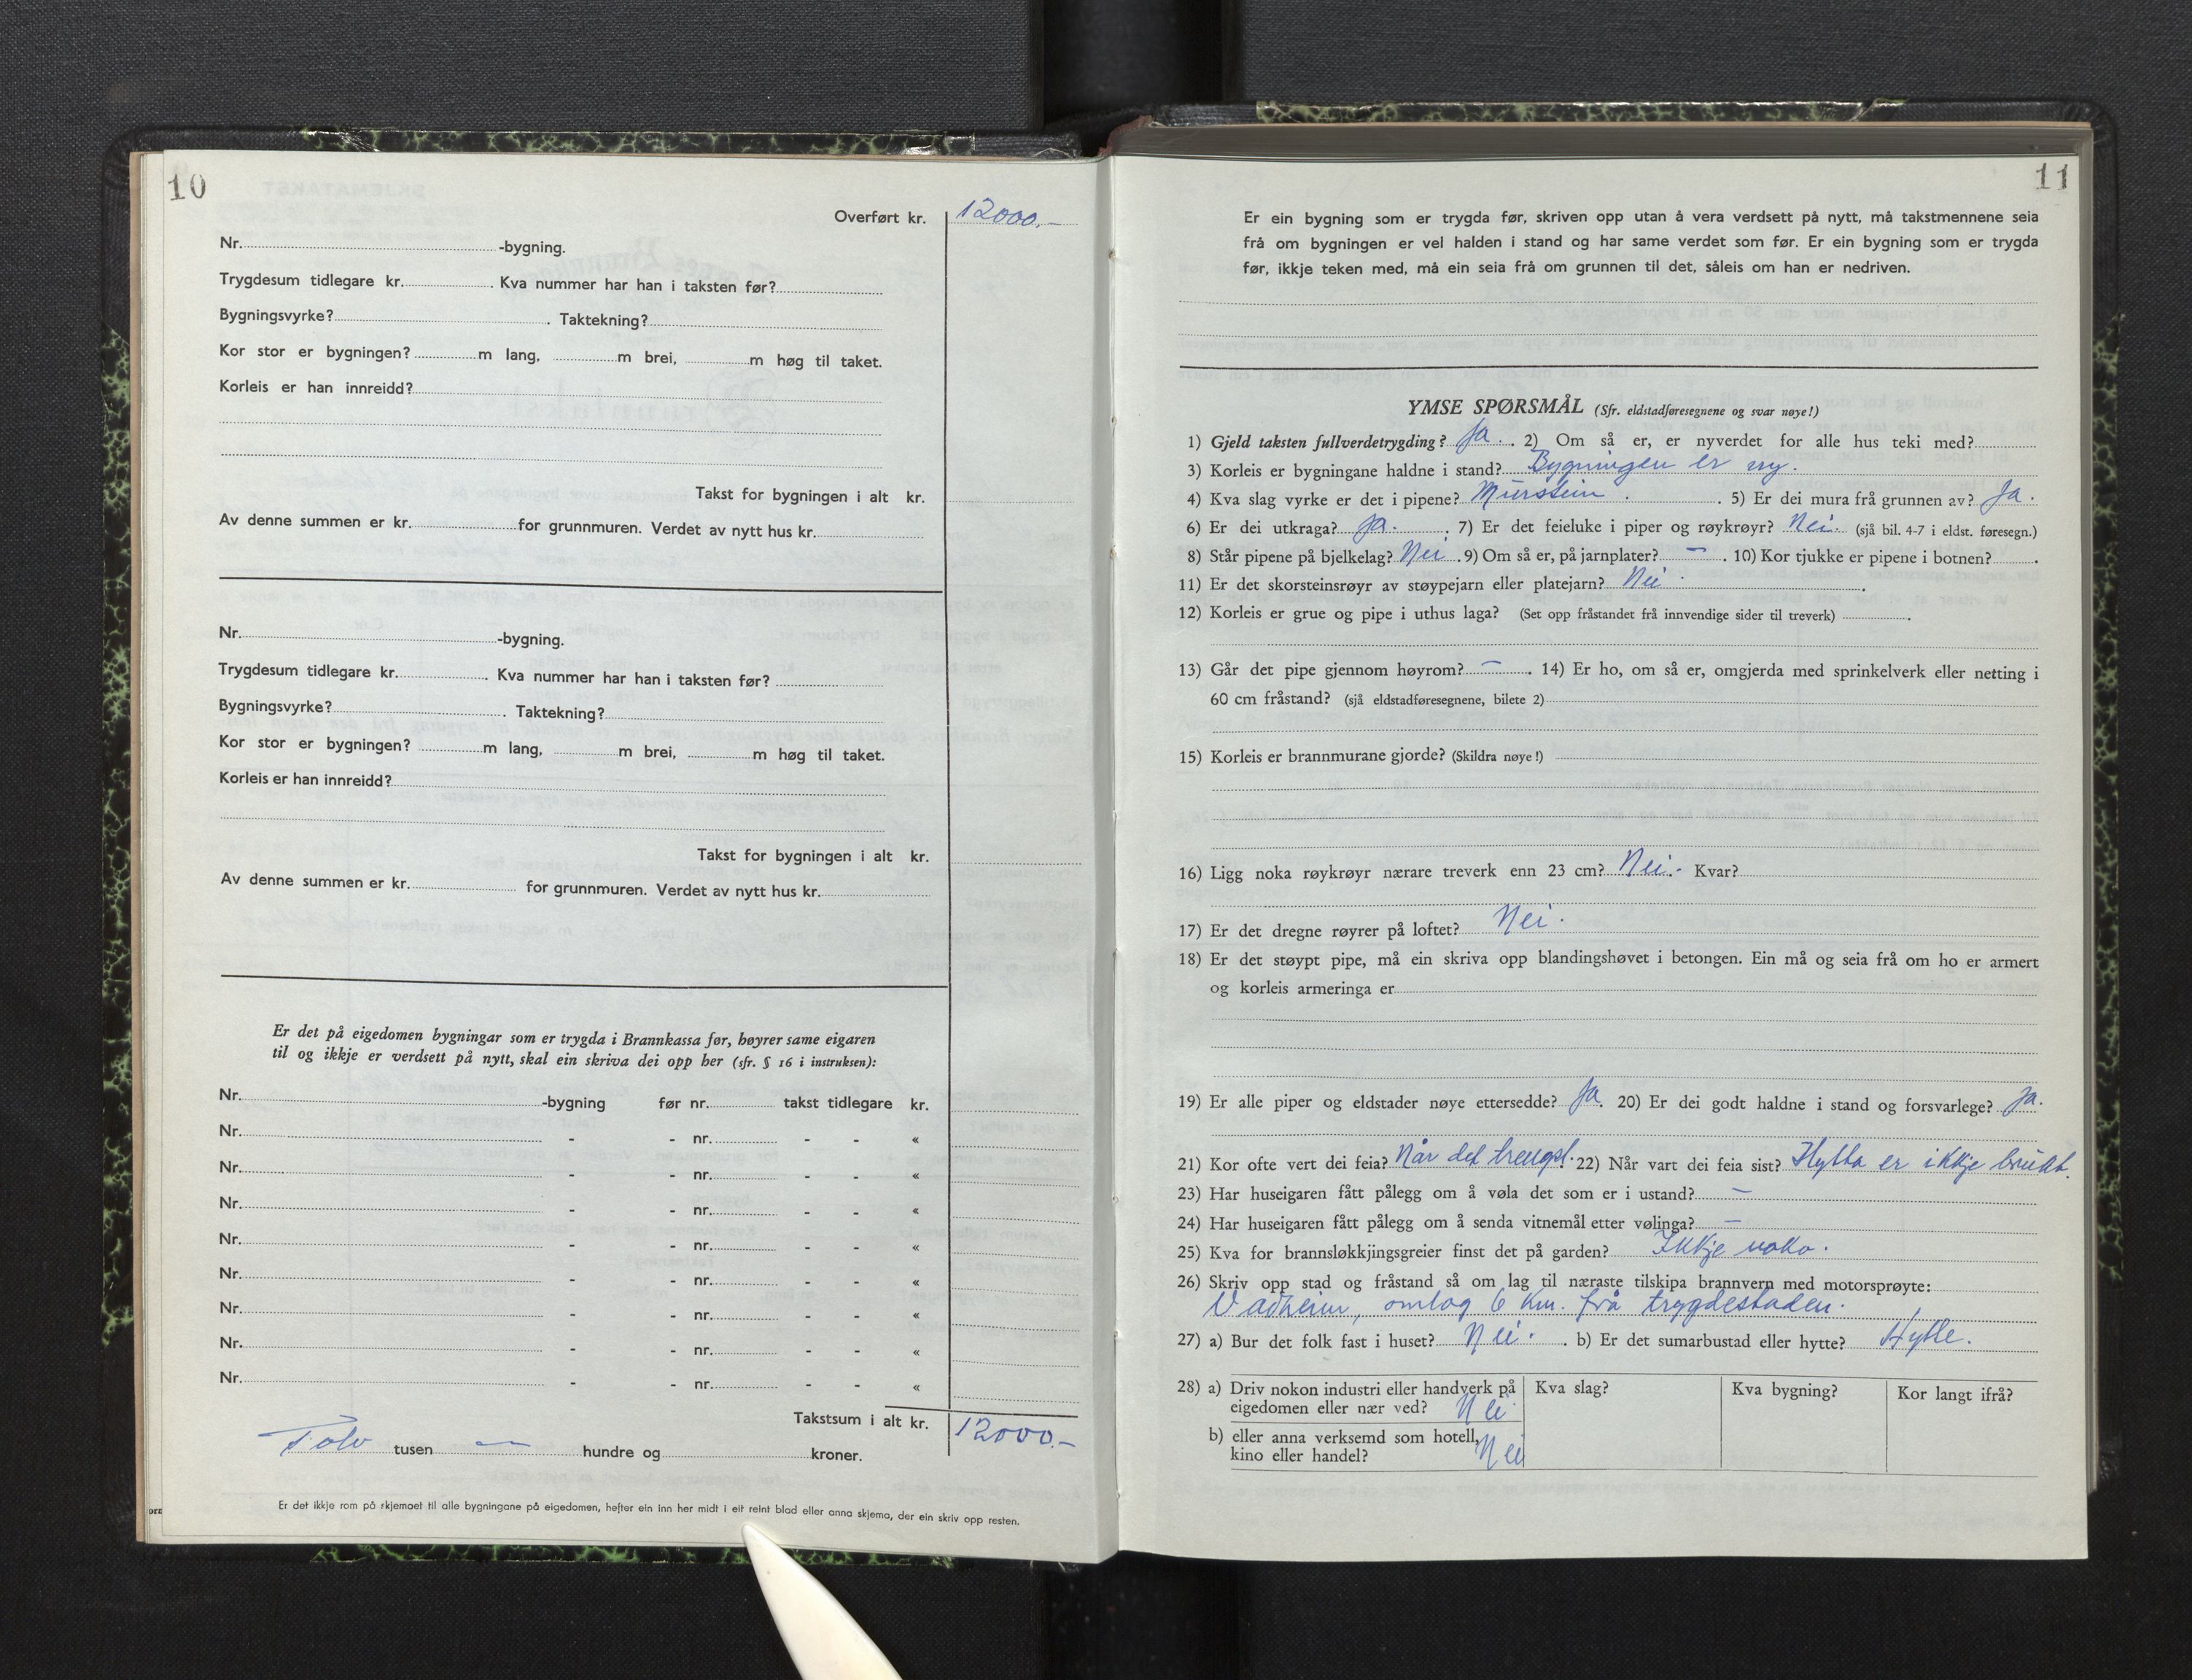 10
Overført kr. 12000.-
Nr. -bygning.
Trygdesum tidlegare kr. . Kva nummer har han i taksten før?
Bygningsvyrke? . Taktekning?
Kor stor er bygningen? m lang, m brei, m høg til taket.
Korleis er han innreidd?
Takst for bygningen i alt kr.
Av denne summen er kr. for grunnmuren. Verdet av nytt hus kr.
Nr. -bygning.
Trygdesum tidlegare kr. . Kva nummer har han i taksten før?
Bygningsvyrke? . Taktekning?
Kor stor er bygningen? m lang, m brei, m høg til taket.
Korleis er han innreidd?
Takst for bygningen i alt kr.
Av denne summen er kr. for grunnmuren. Verdet av nytt hus kr.
Er det på eigedomen bygningar som er trygda i Brannkassa før, høyrer same eigaren
til og ikkje er verdsett på nytt, skal ein skriva dei opp her (sfr. § 16 i instruksen):
Nr. -bygning før nr. takst tidlegare kr.
Nr. - - nr. - - «
Nr. - - nr. - - «
Nr. - - nr. - - «
Nr. - - nr. - - «
Nr. - - nr. - - «
Nr. - - nr. - - «
Nr. - - nr. - - «
Nr. - - nr. - - «
Takstsum i alt kr. 12000.-
Tolv tusen — hundre og kroner.
Er det ikkje rom på skjemaet til alle bygningane på eigedomen, hefter ein inn her midt i eit reint blad eller anna skjema, der ein skriv opp resten.
11
Er ein bygning som er trygda før, skriven opp utan å vera verdsett på nytt, må takstmennene seia
frå om bygningen er vel halden i stand og har same verdet som før. Er ein bygning som er trygda
før, ikkje teken med, må ein seia frå om grunnen til det, såleis om han er nedriven.
YMSE SPØRSMÅL (Sfr. eldstadføresegnene og svar nøye!)
1) Gjeld taksten fullverdetrygding? Ja. . 2) Om så er, er nyverdet for alle hus teki med?
3) Korleis er bygningane haldne i stand? Bygningen er ny.
4) Kva slag vyrke er det i pipene? Murstein . . 5) Er dei mura frå grunnen av? Ja.
6) Er dei utkraga? Ja. . 7) Er det feieluke i piper og røykrøyr? Nei. (sjå bil. 4-7 i eldst. føresegn.)
8) Står pipene på bjelkelag? Nei . 9) Om så er, på jarnplater? — . 10) Kor tjukke er pipene i botnen? .
11) Er det skorsteinsrøyr av støypejarn eller platejarn? Nei. .
12) Korleis er grue og pipe i uthus laga? (Set opp fråstandet frå innvendige sider til treverk) .
13) Går det pipe gjennom høyrom? — . 14) Er ho, om så er, omgjerda med sprinkelverk eller netting i
60 cm fråstand? (sjå eldstadføresegnene, bilete 2)
15) Korleis er brannmurane gjorde? (Skildra nøye!)
16) Ligg noka røykrøyr nærare treverk enn 23 cm? Nei.- Kvar?
17) Er det dregne røyrer på loftet? Nei.
18) Er det støypt pipe, må ein skriva opp blandingshøvet i betongen. Ein må og seia frå om ho er armert
og korleis armeringa er
19) Er alle piper og eldstader nøye ettersedde? Ja. 20) Er dei godt haldne i stand og forsvarlege? Ja.
21) Kor ofte vert dei feia? Når det trengst. 22) Når vart dei feia sist? Hytta er ikkje brukt.
23) Har huseigaren fått pålegg om å vøla det som er i ustand? —
24) Har huseigaren fått pålegg om å senda vitnemål etter vølinga? —
25) Kva for brannsløkkjingsgreier finst det på garden? Ikkje noko.
26) Skriv opp stad og fråstand så om lag til næraste tilskipa brannvern med motorsprøyte:
Vadheim, omlag 6 km. frå trygdestaden.
27) a) Bur det folk fast i huset? Nei. . b) Er det sumarbustad eller hytte? Hytte.
28) a) Driv nokon industri eller handverk på Kva slag? Kva bygning? Kor langt ifrå?
eigedomen eller nær ved? Nei.
b) eller anna verksemd som hotell,
kino eller handel? Nei